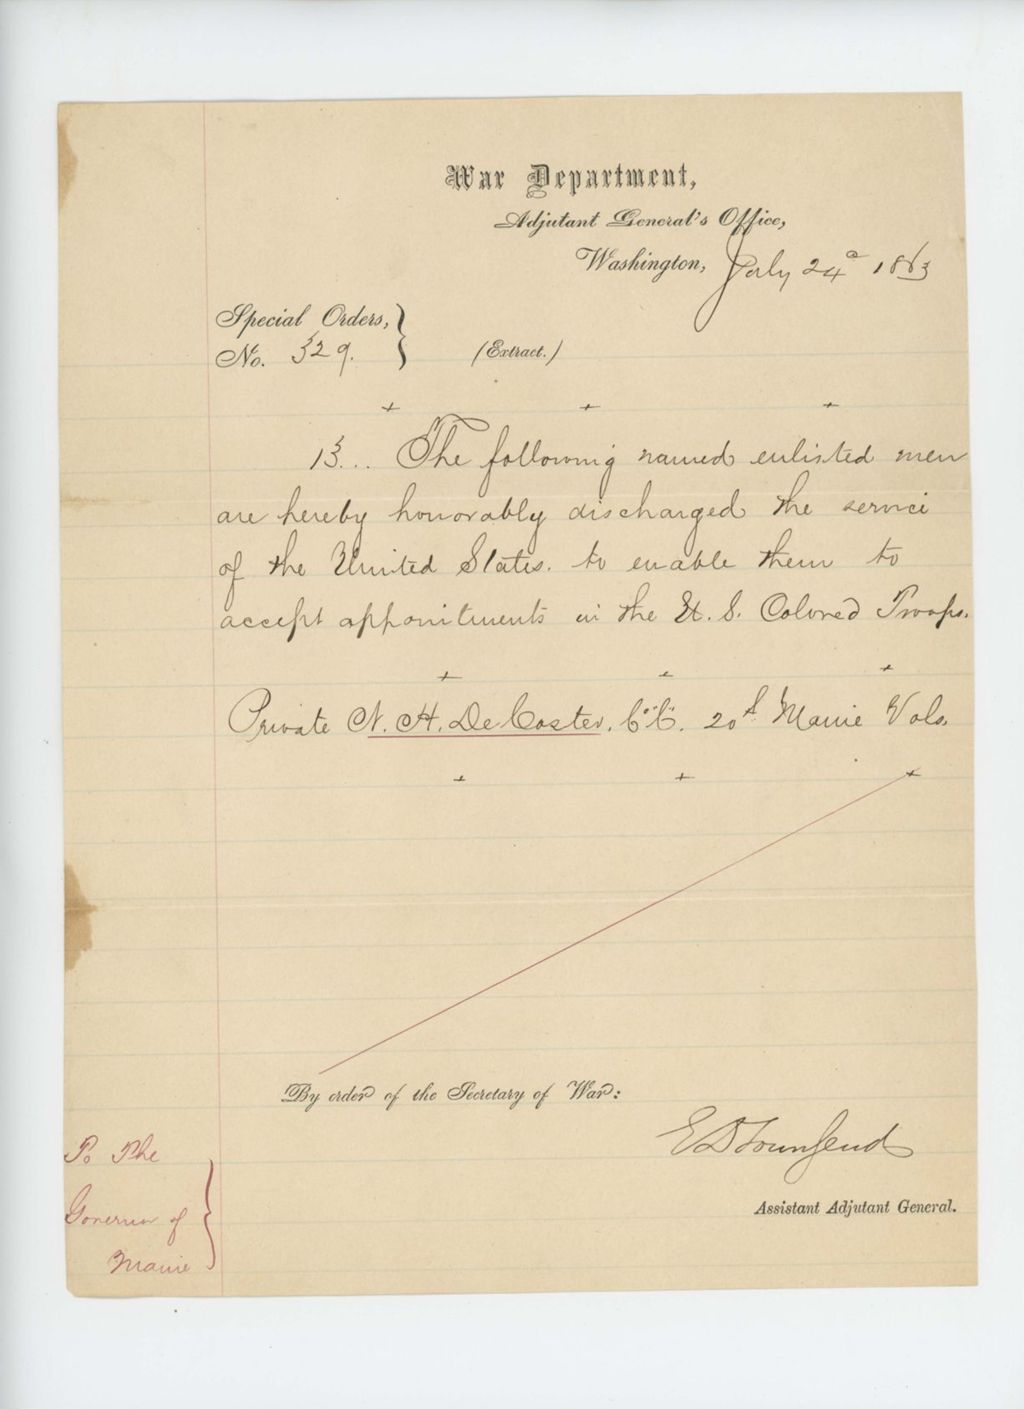 War Department,
Adjutant General's Office,
Washington, July 24th 1863
Special Orders,
No. 329.
(Extract.)
+ + +
13... The following named enlisted men
are hereby honorably discharged the service
of the United States. to enable them to
accept appointments in the U. S. Colored Troops.
+ + +
Private N. H. De Coster. Co "C". 20th Maine Vols.
+ + +
By order of the Secretary of War:
E D Townsend
Assistant Adjutant General.
To The
Governor of
Maine